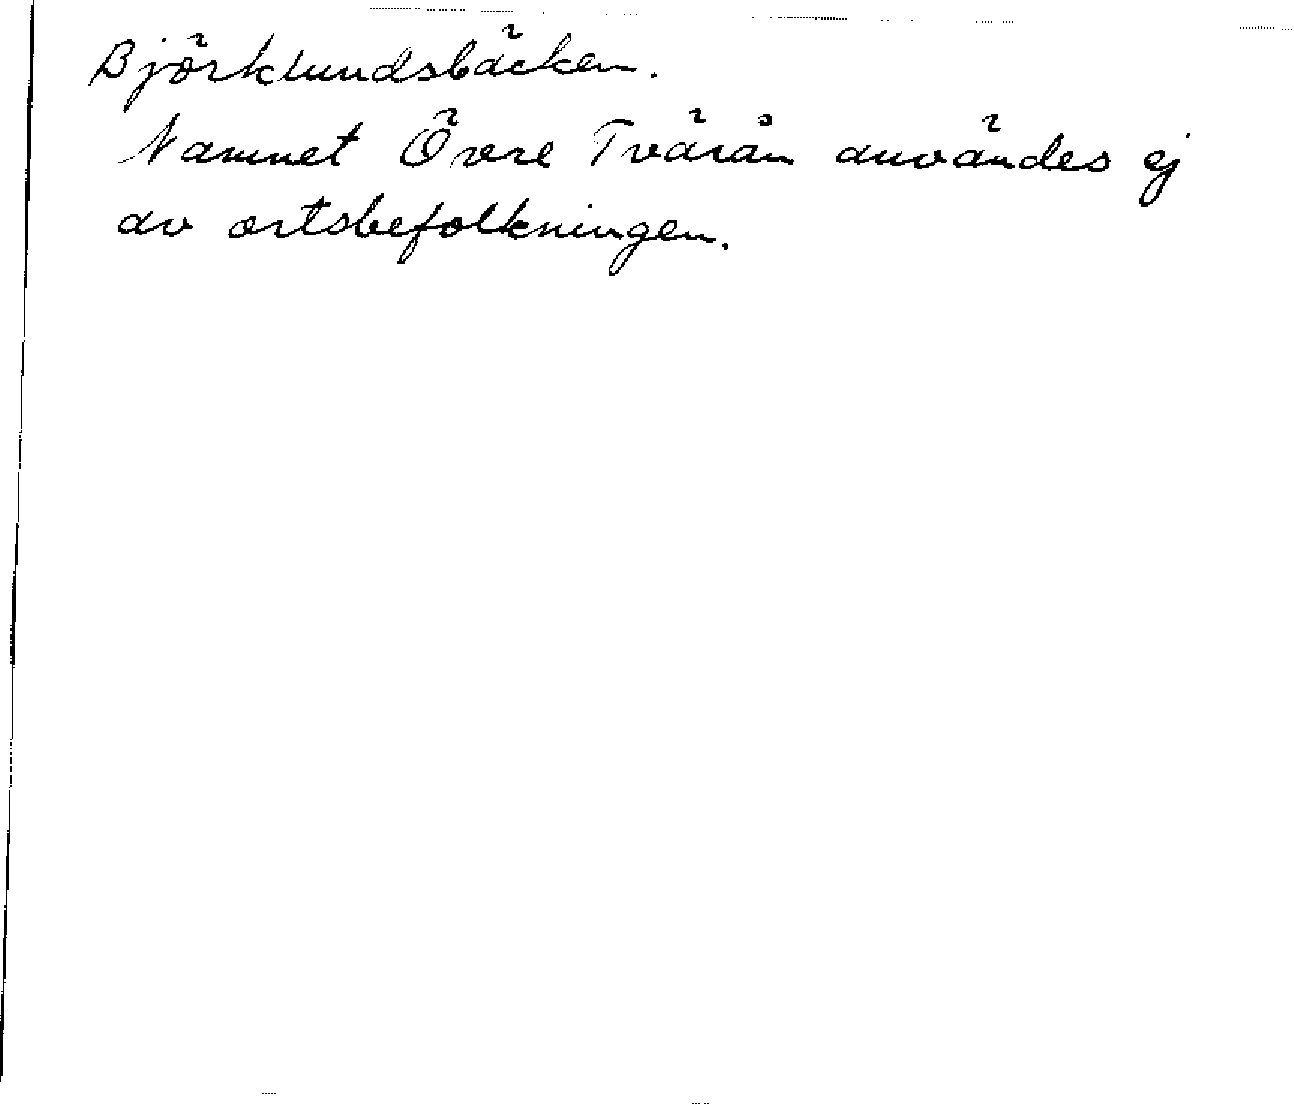 Björklundsbäcken.
Namnet Övre Tvärån användes ej
av ortsbefolkningen.